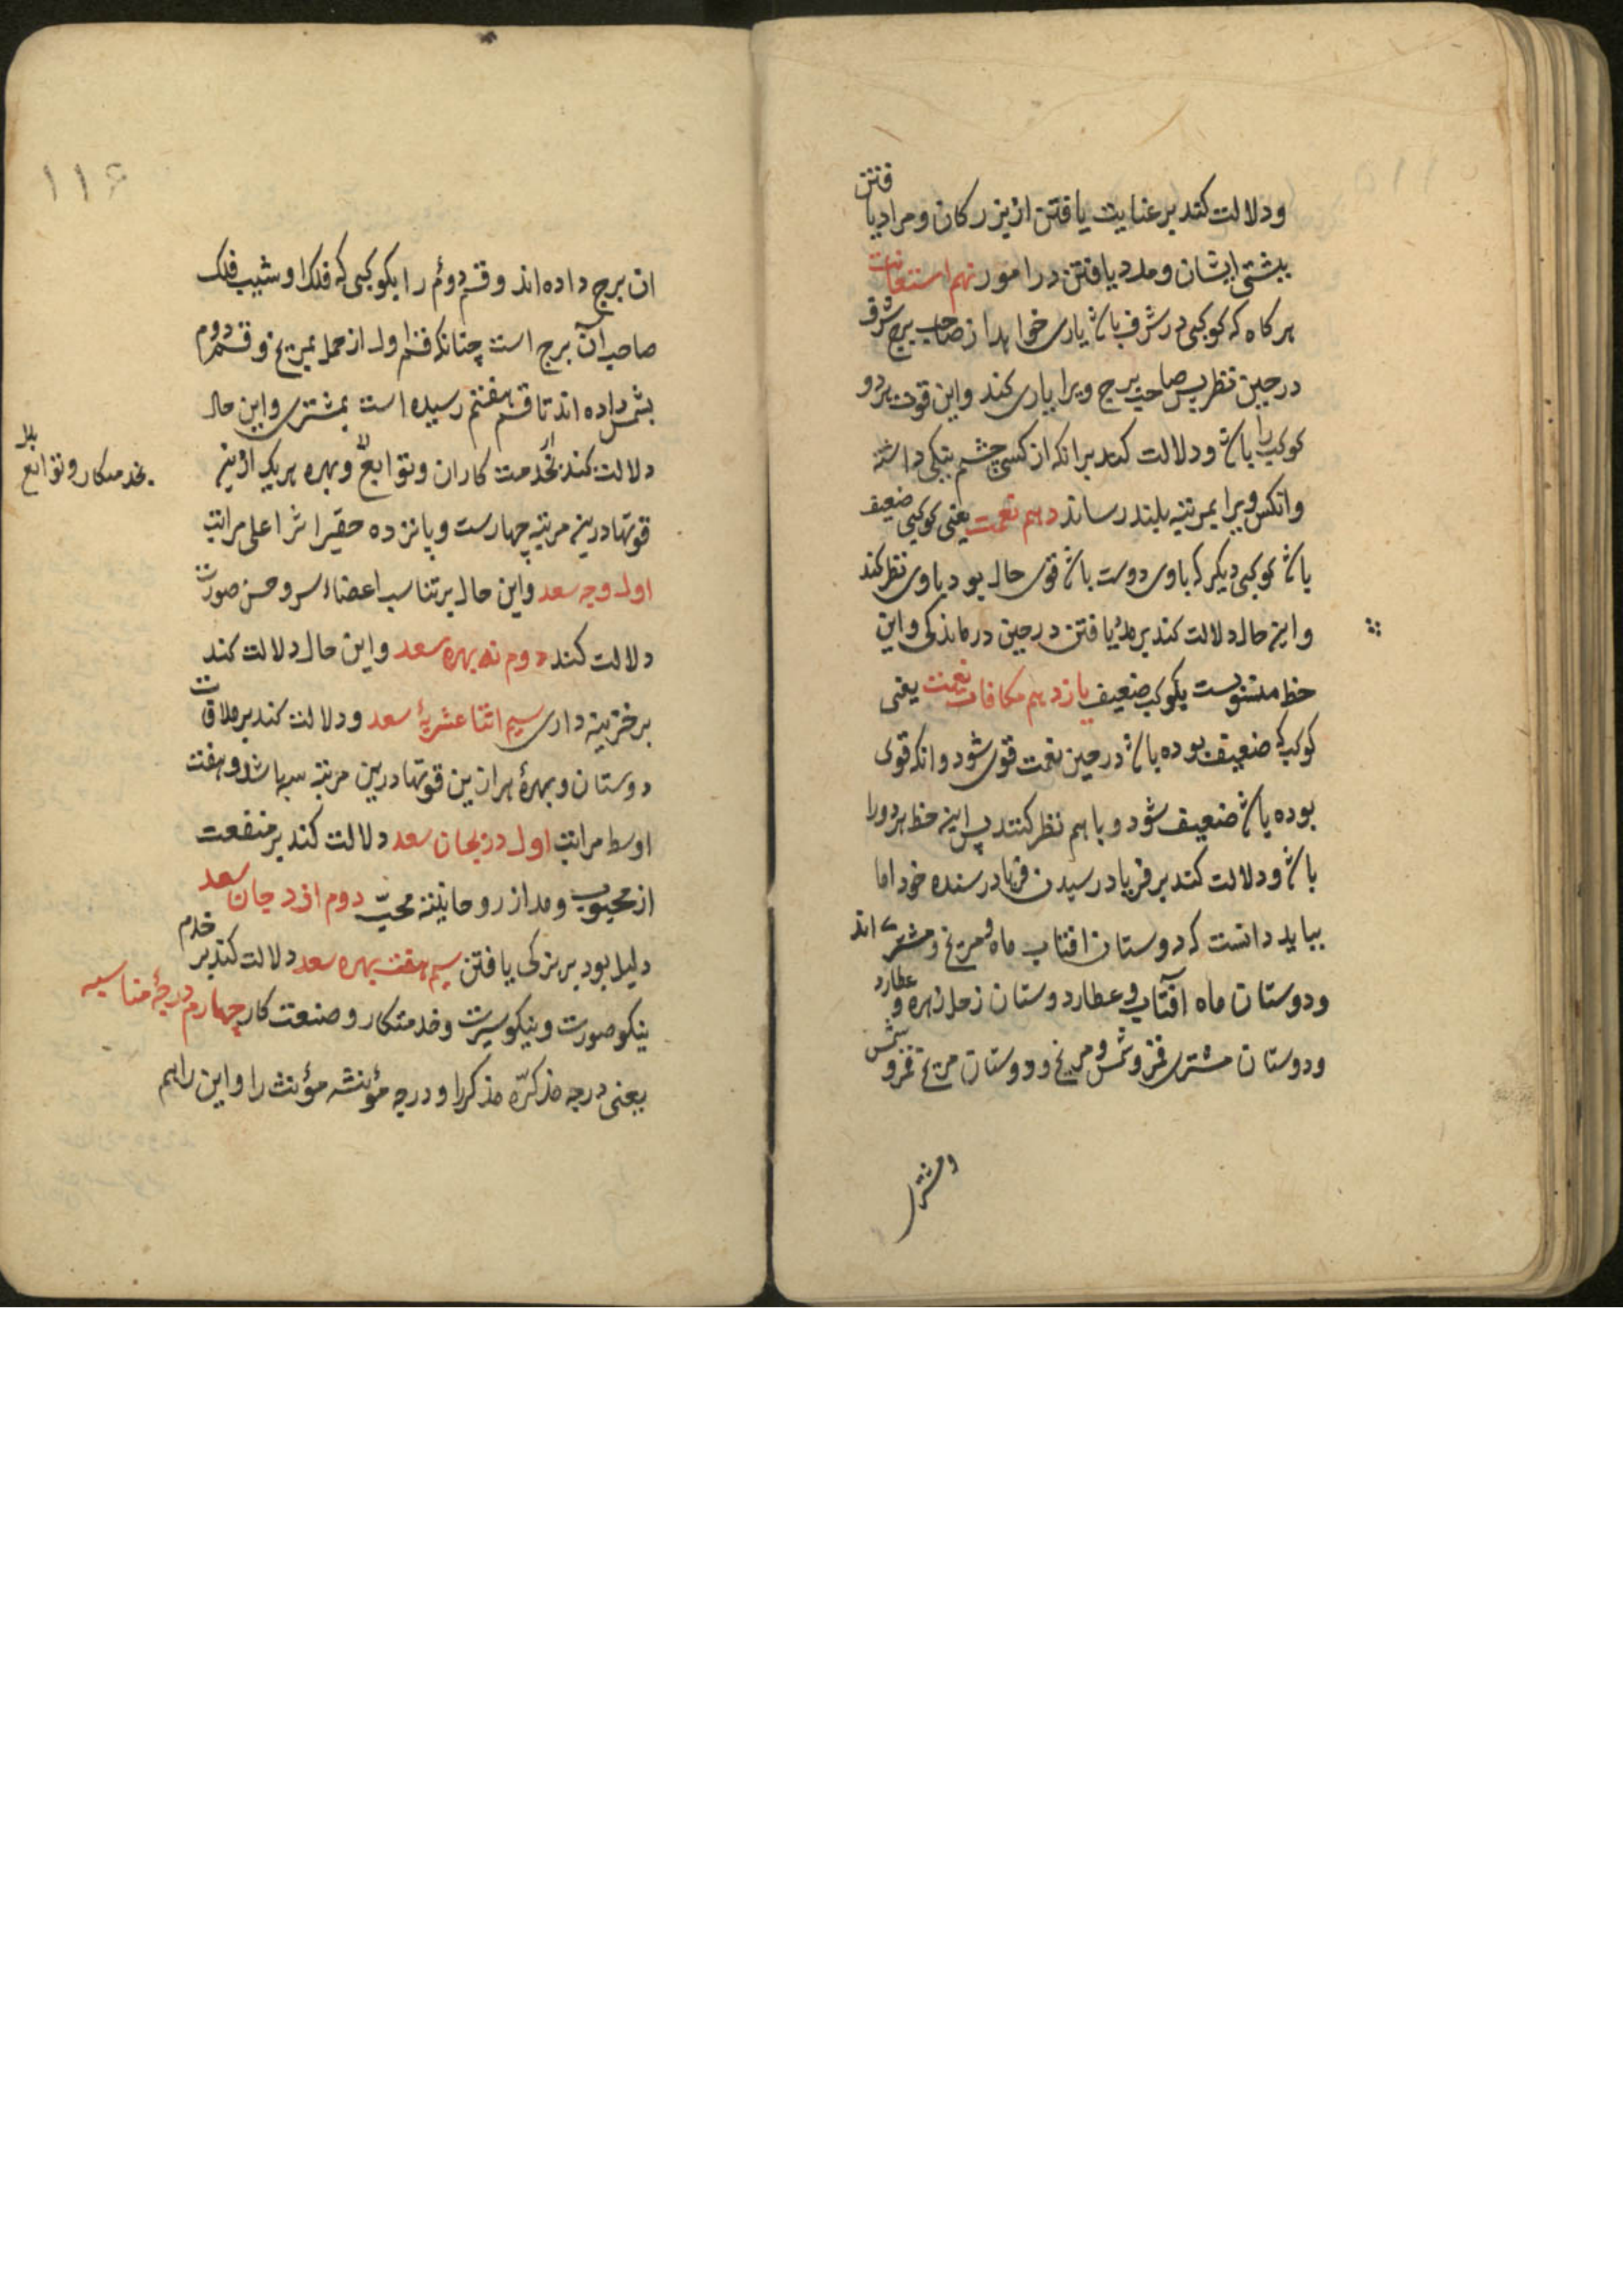 ودلالت کند بر عنایت یافتن از بزرکان و مراد یافتن
بپشتی ایشان و مدد یافتن در امور نهم استعانت
هرکاه که کوکبی در شرف باشد یاری خواهد از صاحب برج شرف
در حین نظر پس صاحب برج ویرا یاری کند واین قوت هر دو
کوکب را باشد ودلالت کند برانکه از کسی چشم نیکی داشته
وانکس ویرا بمرتبه بلند رساند دهم نعمت یعنی کوکبی ضعیف
باشد کوکبی دیکر که با وی دوست باشد قوی حال بود با وی نظر کند
واین حال دلالت کند بر مدد یافتن در حین درماندکی واین
حظ منسوبست بکوکب ضعیف یازدهم مکافات نعمت یعنی
کوکب که ضعیف بوده باشد در حین نعمت قوی شود وانکه قوی
بوده باشد ضعیف شود وباهم نظر کنند پس این حظ هر دورا
باشد ودلالت کند بر فریاد رسیدن فریاد رسنده خود اما
بباید دانست که دوستان افتاب ماه و مریخ و مشتری اند
ودوستان ماه آفتاب و عطارد دوستان زحل زهره و عطارد
ودوستان مشتری قمر و شمس و مریخ ودوستان مریخ قمر و شمس
ومشتری
۱۱۶
ان برج داده اند وقسم دوم را بکوکبی که فلک او شیب فلک
صاحب آن برج است چنانکه قسم اول از حمل بمریخ وقسم دوم
بشمس داده اند تا قسم هفتم رسیده است بمشتری واین حال
دلالت کند بخدمت کاران وتوابع وبهره هریک ازین
بخدمتکار وتوابع
قوتها درین مرتبه چهارست وپانزده حقیرا ثرا اعلی مراتب
اول وجه سعد واین حال بر تناسب اعضاء سر وحسن صورت
دلالت کند دوم نه بهره سعد واین حال دلالت کند
بر خزینه داری سیم اثنا عشریهٔ سعد ودلالت کند بر ملاقات
دوستان وبهرهٔ هر ازین قوتها درین مرتبه سه باشد وهفت
اوسط مراتب اول دریجان سعد دلالت کند بر منفعت
از محبوب ومدد از روحانیت محبّ دوم اذدجان سعد
دلیل بود بر بزرکی یافتن سیم هفت بهره سعد دلالت کند بر خدم
نیکو صورت ونیکو سیرت وخدمتکار وصنعت کار چهارم درجهٔ مناسبه
یعنی درجه مذکرّه مذکررا ودرجه مؤنثه مؤنث را واین را هم